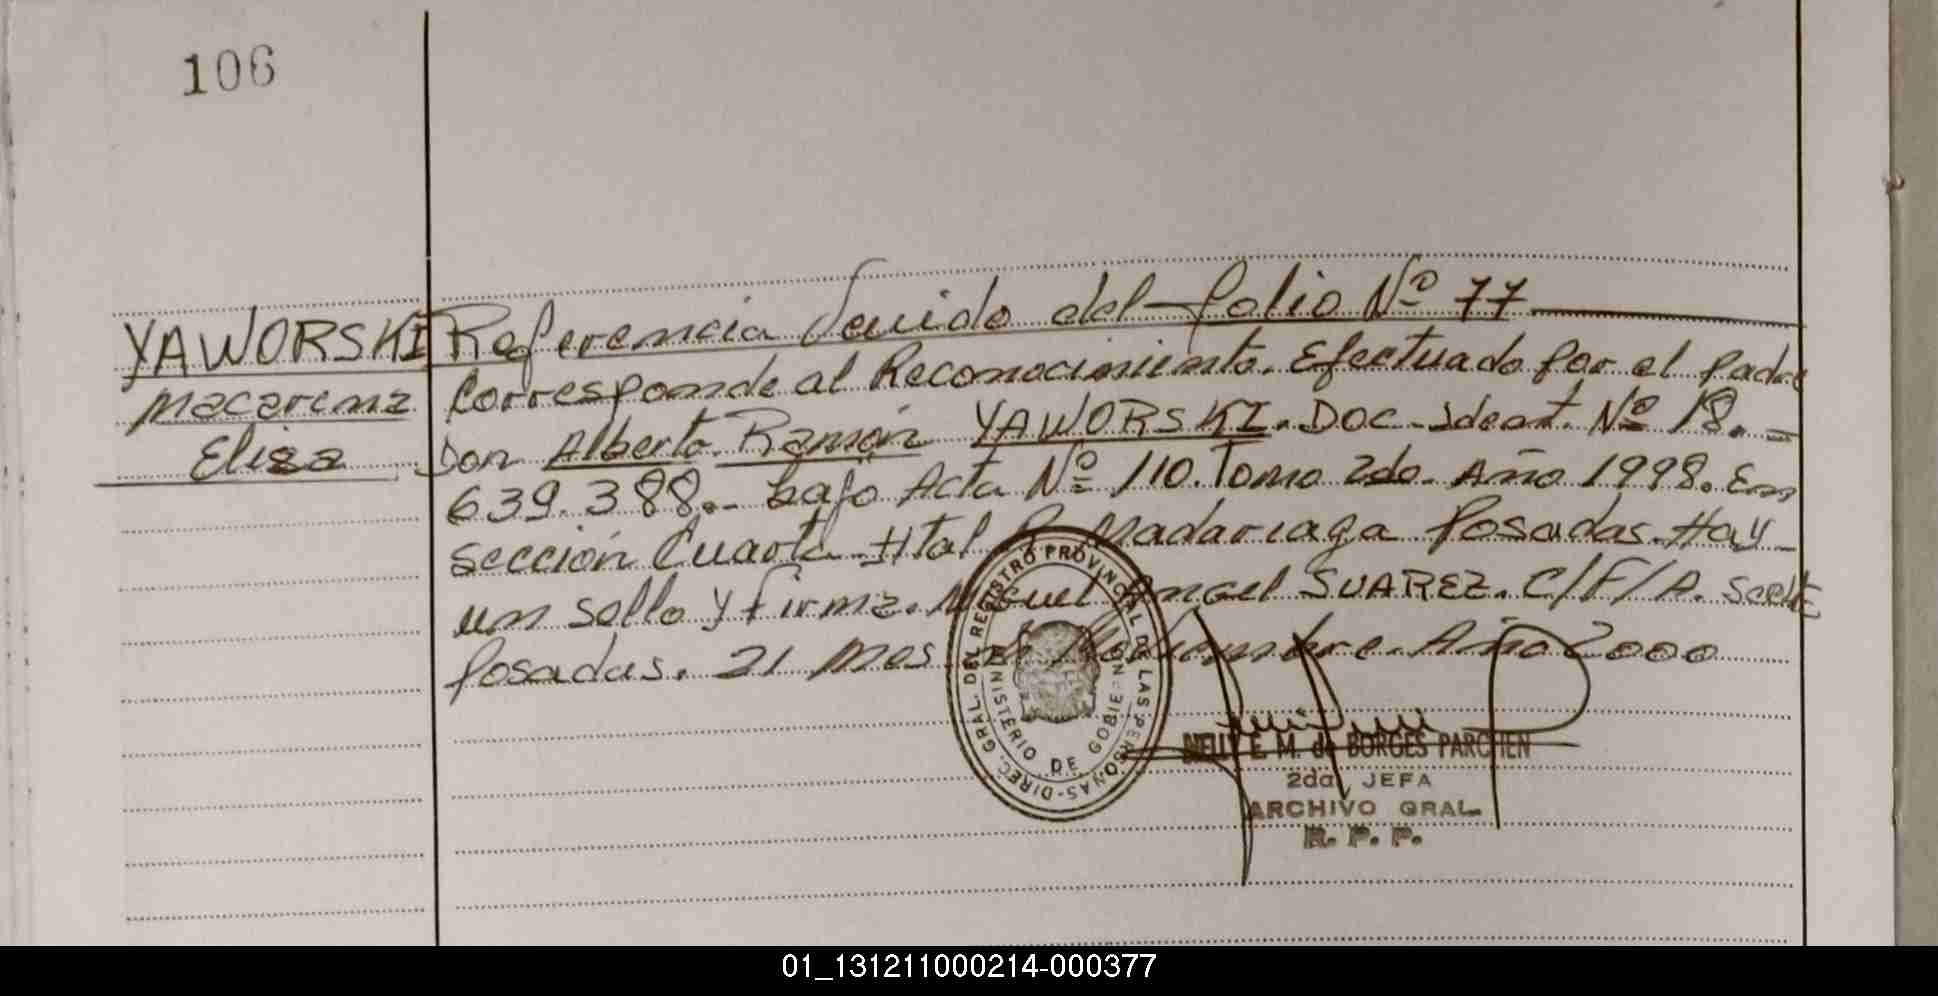 106
YAWORSKI Referencia Venido del folio Nº 77
Macarena Corresponde al Reconocimiento. Efectuado por el padre
Elisa Don Alberto Ramón YAWORSKI. Doc. Ident. Nº 18.-
639.388.- bajo Acta Nº 110. Tomo 2do. Año 1998. En
sección Cuarta Htal R Madariaga Posadas. Hay
un sello y firma. Miguel Angel SUAREZ. C/F/A.
Posadas. 21 Mes de Noviembre. Año 2000
DIREC. GRAL. DEL REGISTRO PROVINCIAL DE LAS PERSONAS
MINISTERIO DE GOBIERNO
NELLY E. M. de BORGES PARCHEN
2da. JEFA
ARCHIVO GRAL.
R. P. P.
01_131211000214-000377